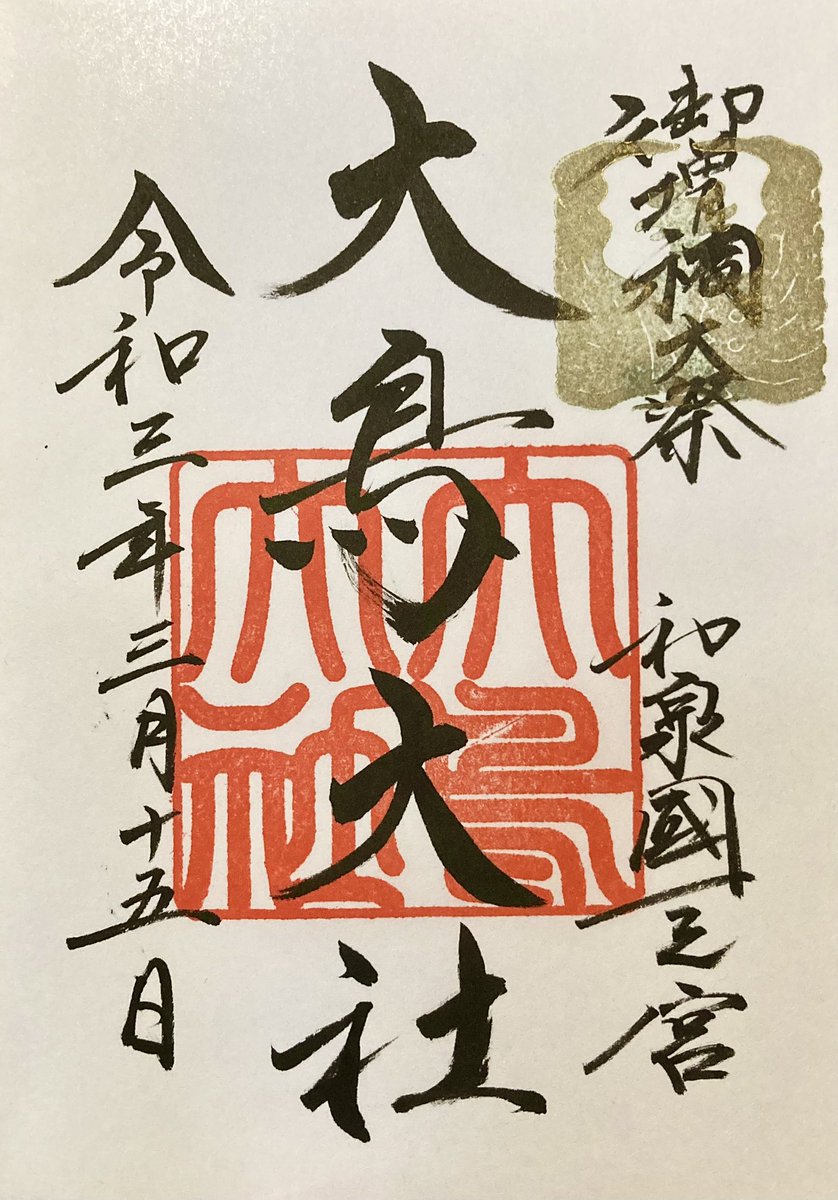 御増大祭
和泉國一之宮
大鳥大社
令和三年三月十五日
大鳥
大社